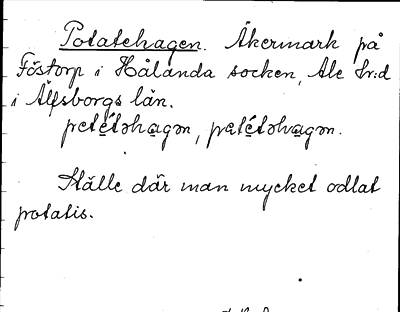 Potatehagen. Åkermark på
Föstorp i Hålanda socken, Ale hr:d
i Älfsborgs län.
petétəhagən, pətétəhvagən.
Ställe där man mycket odlat
potatis.